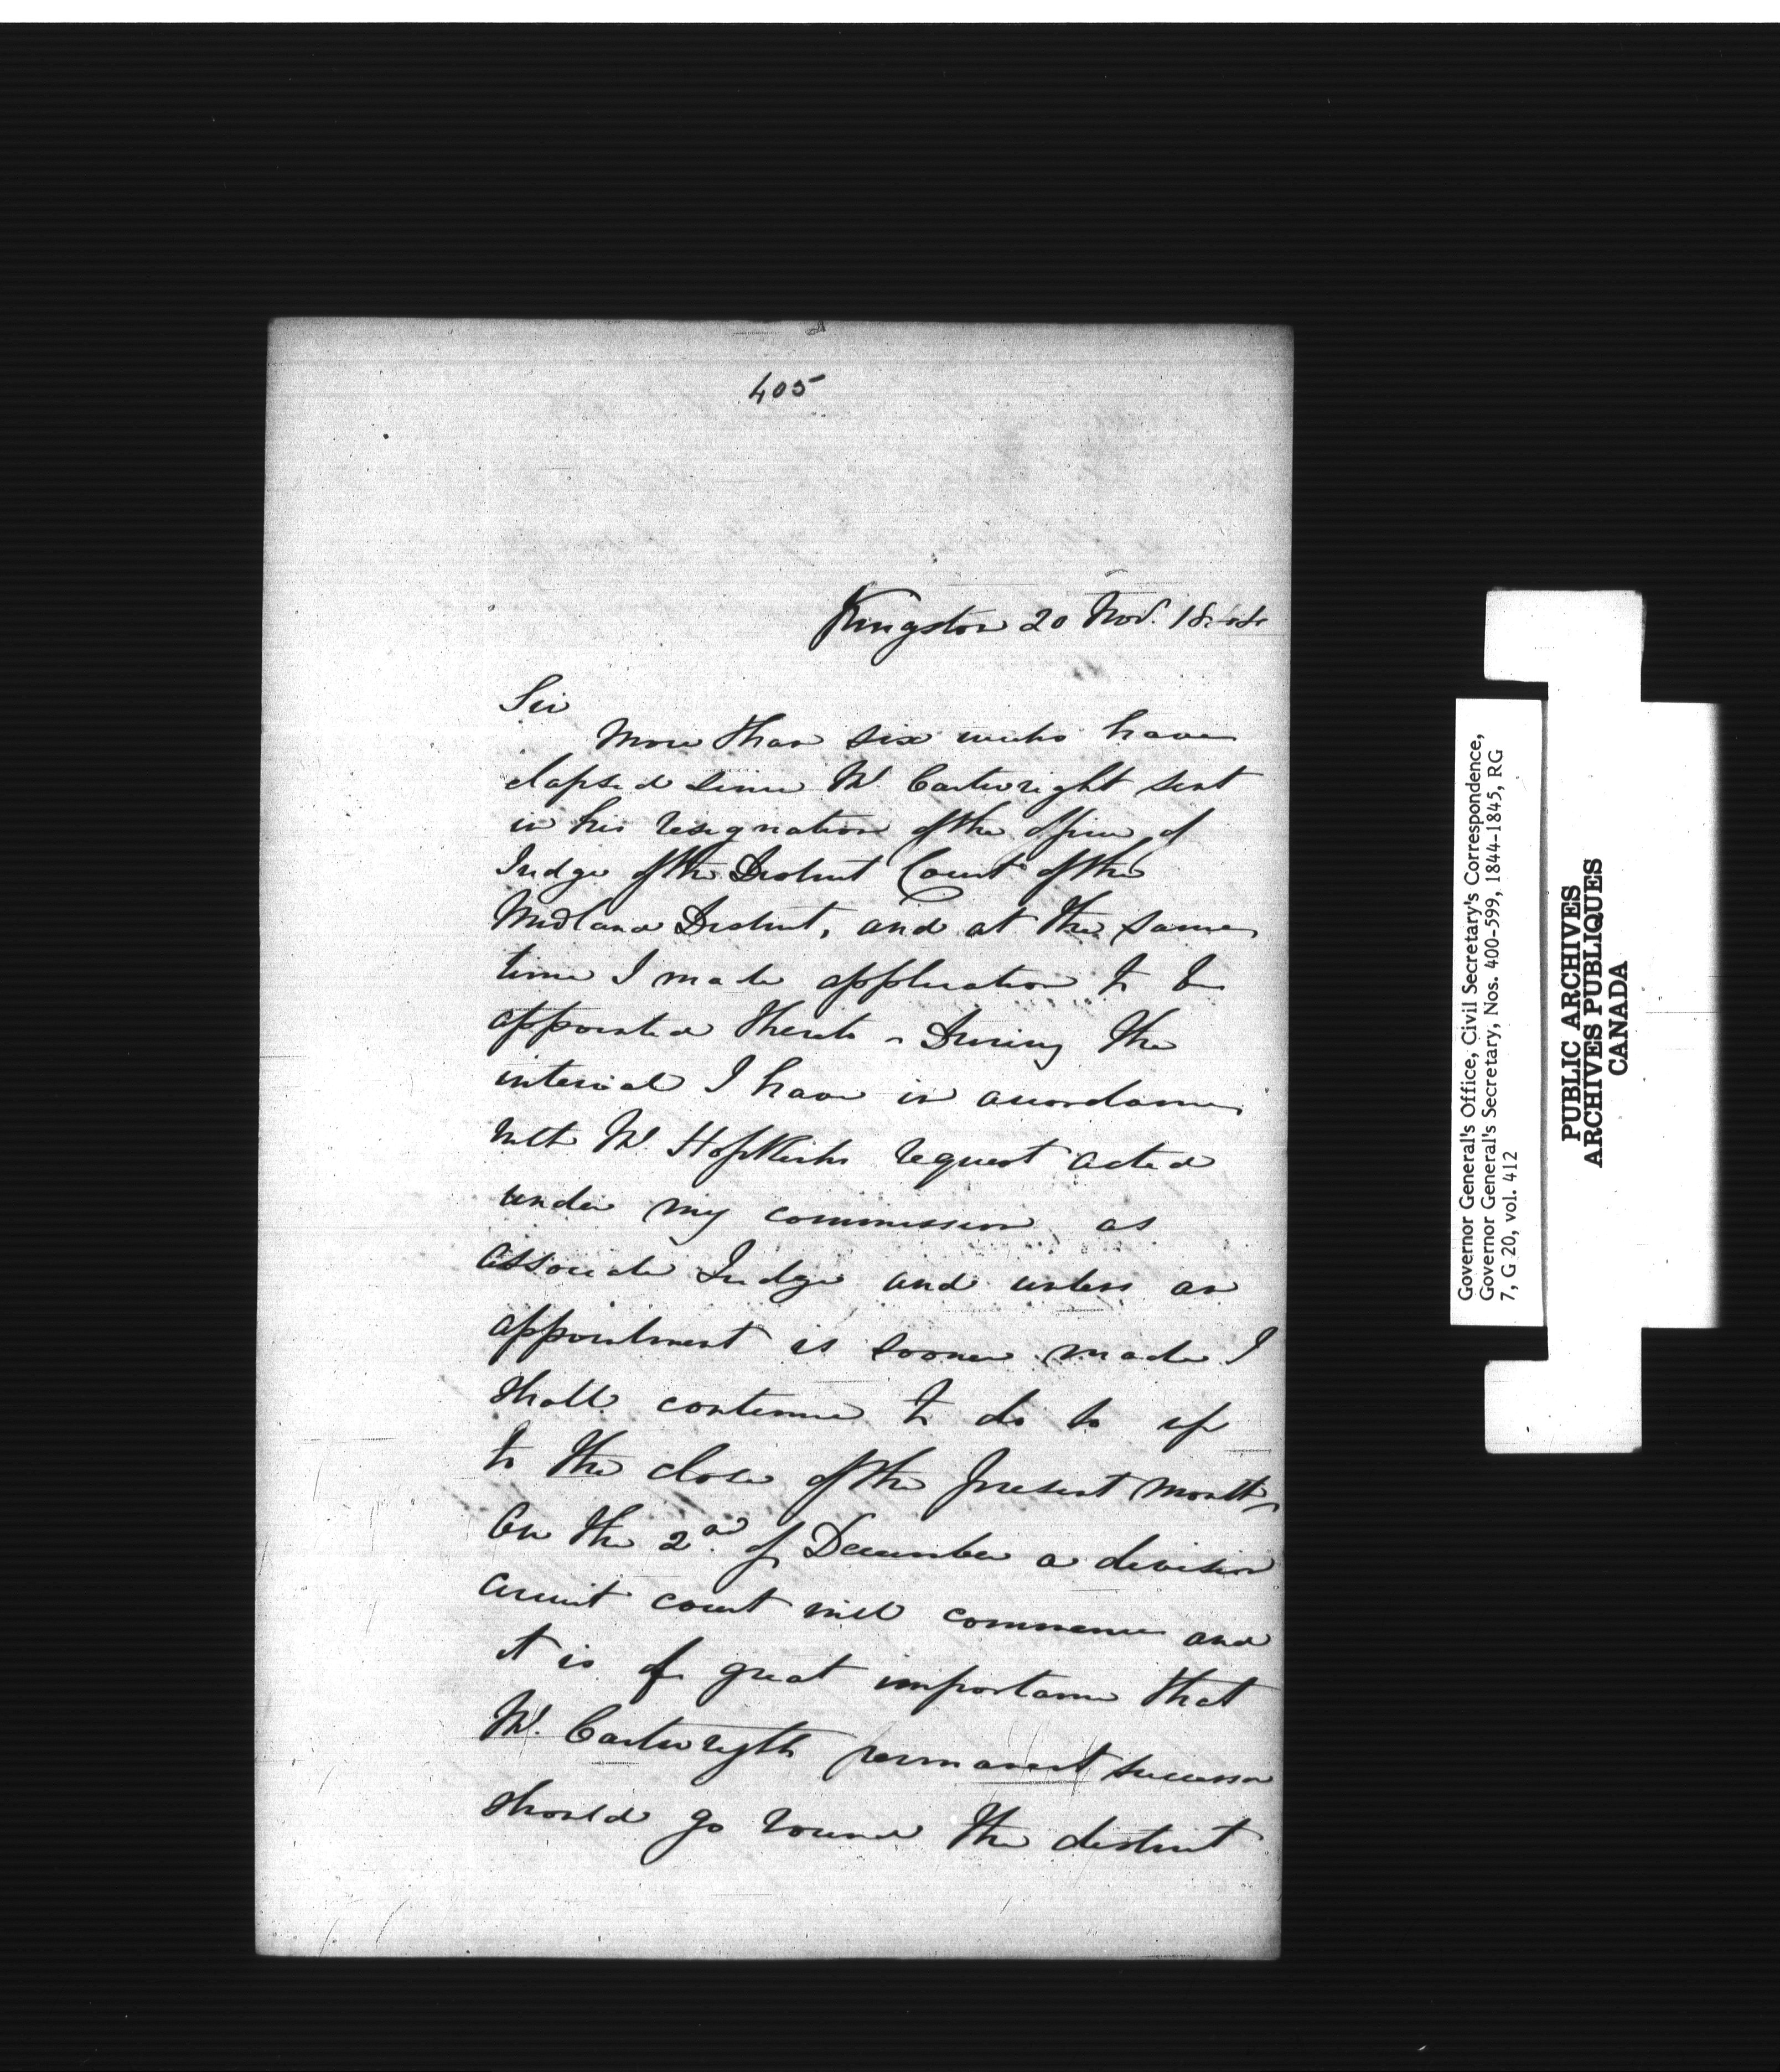 405
Kingston 20 Nov. 1844
Sir
More than six weeks have
elapsed since Mr. Cartwright sent
in his resignation of the office of
Judge of the District Court of the
Midland District, and at the same
time I made application to be
appointed thereto - During the
interval I have in accordance
with Mr. Hopkirks request acted
under my commission as
associate Judge and unless an
appointment is sooner made I
shall continue to do so up
to the close of the present month -
On the 2d. of December a division
circuit court will commence and
it is of great importance that
Mr. Cartwrigth permanent successor
should go round the district
Governor General's Office, Civil Secretary's Correspondence,
Governor General's Secretary, Nos. 400-599, 1844-1845, RG
7, G 20, vol. 412
PUBLIC ARCHIVES
ARCHIVES PUBLIQUES
CANADA